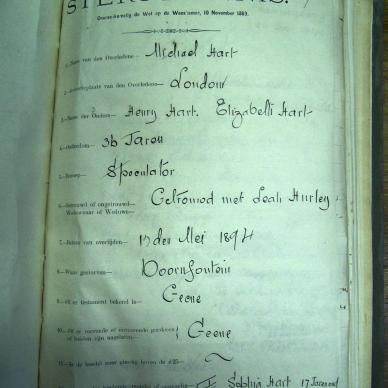 Overeenkomstig de Wet op de Weeskamer, 10 November 1869.
1.—Naam van den Overledene— Michael Hart
van den Overledene— London
3.—Namen der Ouders— Henry Hart. Elizabeth Hart
4.—Ouderdom— 36 Jaren
5.—Beroep— Speculator
6.—Getrouwd of ongetrouwd, Getrouwd met Leah Hurley
Weduwnaar of Weduwe—
7.—Datum van overlijden— den Mei 1894
8.—Waar gestorven— Doornfontein
9.—Of er testament bekend is— Geene
10.—Of er Geene
of heeft nagelaten—
Sophia Hart 17 Jaren oud